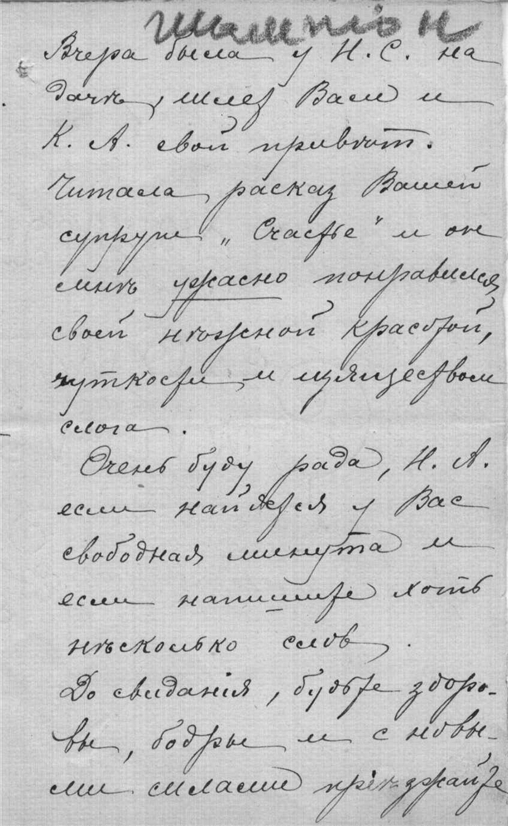 Шампіон
Вчера была у Н. С. на
дачѣ, шлез Вам и
К. А. свой привѣт.
Читала расказ Вашей
супруги „Счастье" и он
мнѣ ужасно понравился
своей нѣжной красотой,
чуткости и изяществом
слога.
Очень буду рада, Н. А.
если найдется у Вас
свободная минута и
если напишите хоть
нѣсколько слов.
До свиданія, будьте здоро-
вы, бодры и с новы-
ми силами пріѣзжайте